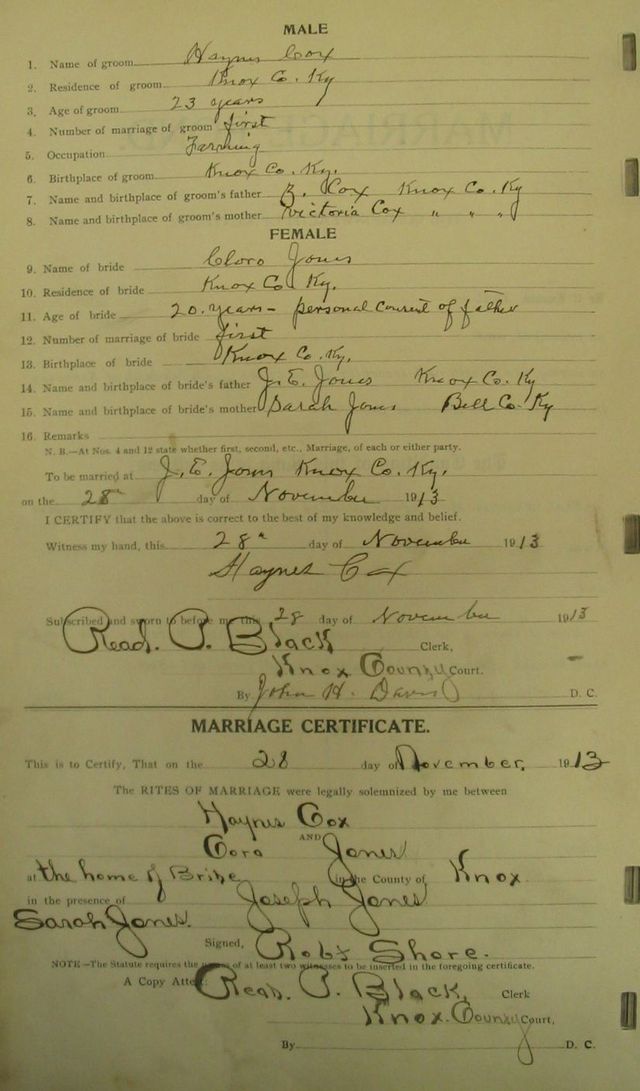 MALE
1. Name of groom Haynes Cox
2. Residence of groom Knox Co. Ky
3. Age of groom 23 years
4. Number of marriage of groom first
5. Occupation Farming
6. Birthplace of groom Knox Co. Ky.
7. Name and birthplace of groom's father Cox Knox Co. Ky
8. Name and birthplace of groom's mother Victoria Cox " " "
FEMALE
9. Name of bride Jones
10. Residence of bride Knox Co Ky.
11. Age of bride 20 years - personal consent of father
12. Number of marriage of bride first
13. Birthplace of bride Knox Co. Ky.
14. Name and birthplace of bride's father J. E. Jones Knox Co. Ky
15. Name and birthplace of bride's mother Sarah Jones Bell Co. Ky
16. Remarks
N. B.—At Nos. 4 and 12 state whether first, second, etc., Marriage, of each or either party.
To be married at J. E. Jones Knox Co. Ky.
on the 28" day of November 1913
I CERTIFY that the above is correct to the best of my knowledge and belief.
Witness my hand, this 28" day of November 1913
Haynes Cox
Subscribed and sworn to before me this 28 day of November 1913
Read. P. Black Clerk,
Knox County Court.
By John H. Davis D. C.
MARRIAGE CERTIFICATE.
This is to Certify, That on the 28 day of November, 1913
The RITES OF MARRIAGE were legally solemnized by me between
Haynes Cox
AND
Cora Jones
at the home of Bride in the County of Knox
in the presence of Joseph Jones
Sarah Jones.
Signed, Robt Shore.
NOTE—The Statute requires the names of at least two witnesses to be inserted in the foregoing certificate.
A Copy Attest: Read. P. Black, Clerk
Knox County Court,
By D. C.